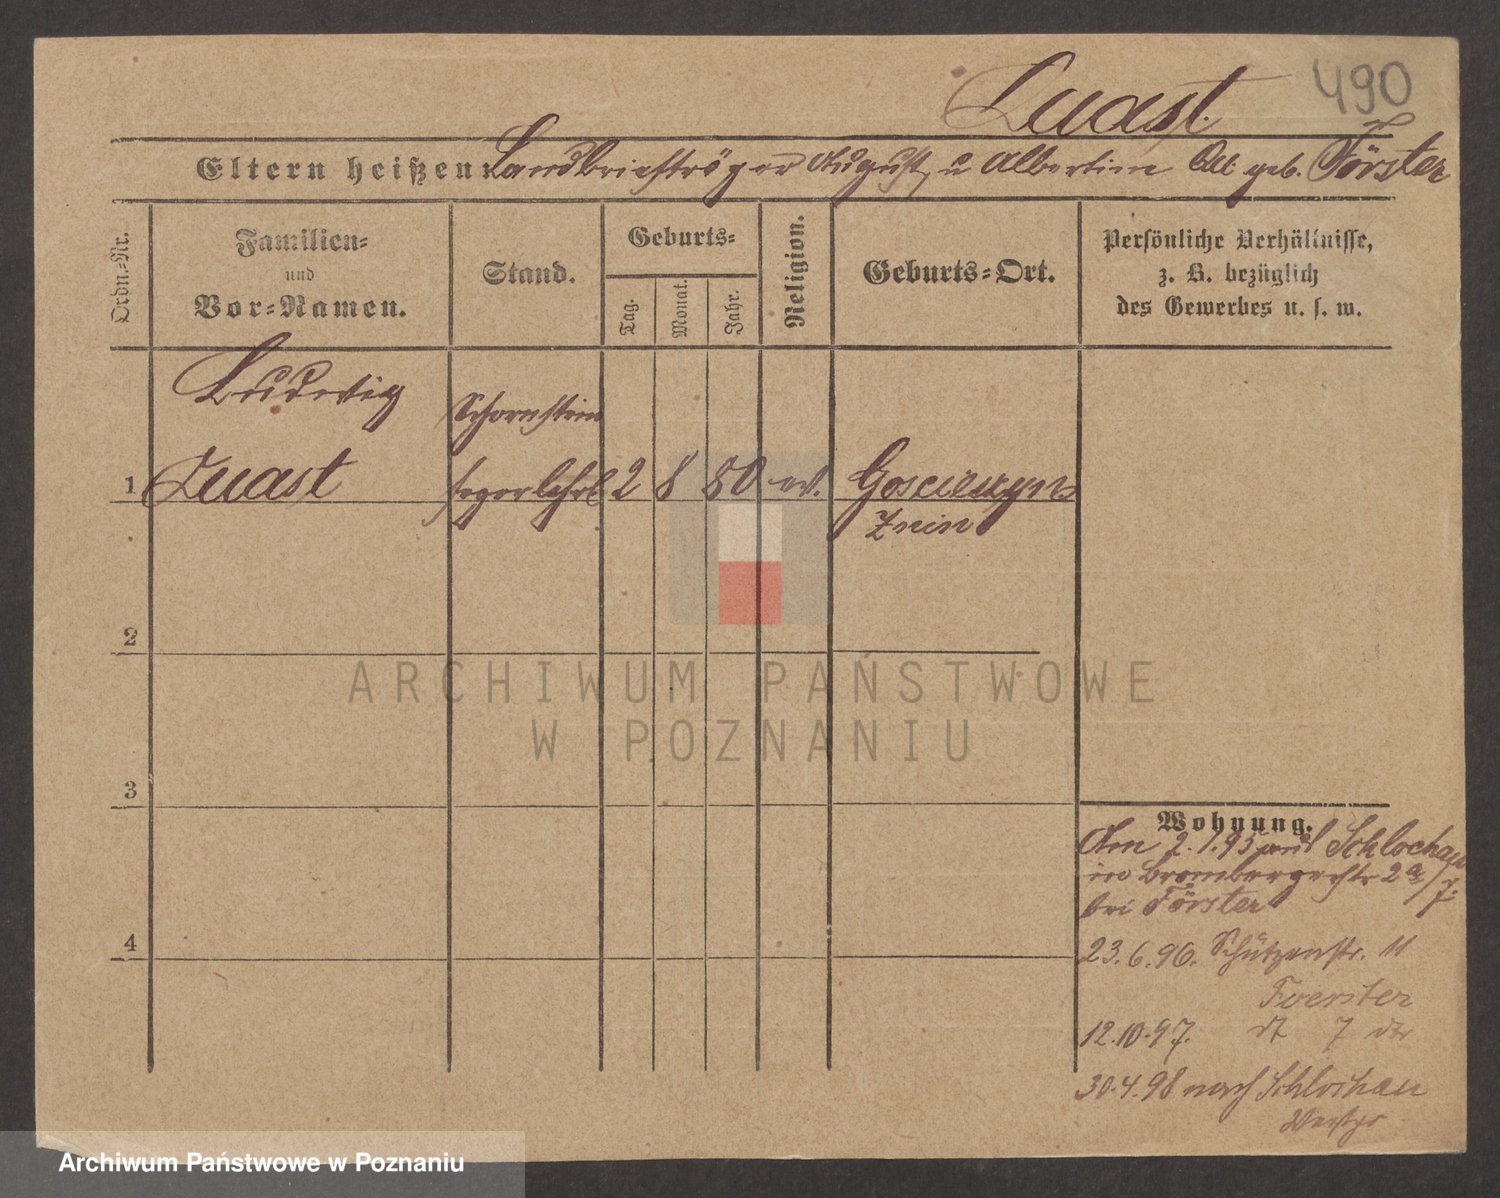 490
Quast
Eltern heißen: Landbriefträger August u Albertine geb. Förster
Ordn.-Nr.
Familien-
und
Vor-Namen.
Stand.
Geburts-
Tag.
Monat.
Jahr.
Religion.
Geburts-Ort.
Persönliche Verhältnisse,
z. B. bezüglich
des Gewerbes u. s. w.
Ludwig
Quast
Schornstein
fegerlehrl
1
2 8 80 ev.
Znin
2
3
4
Wohnung.
Am 2.1.95 aus Schlochau
in Brombergerstr 2a/7.
bei Förster
23.6.96. Schützenstr. 11
Foerster
12.10.97. 7
30.4.98 nach Schlochau
Westpr
ARCHIWUM PAŃSTWOWE
W POZNANIU
Archiwum Państwowe w Poznaniu